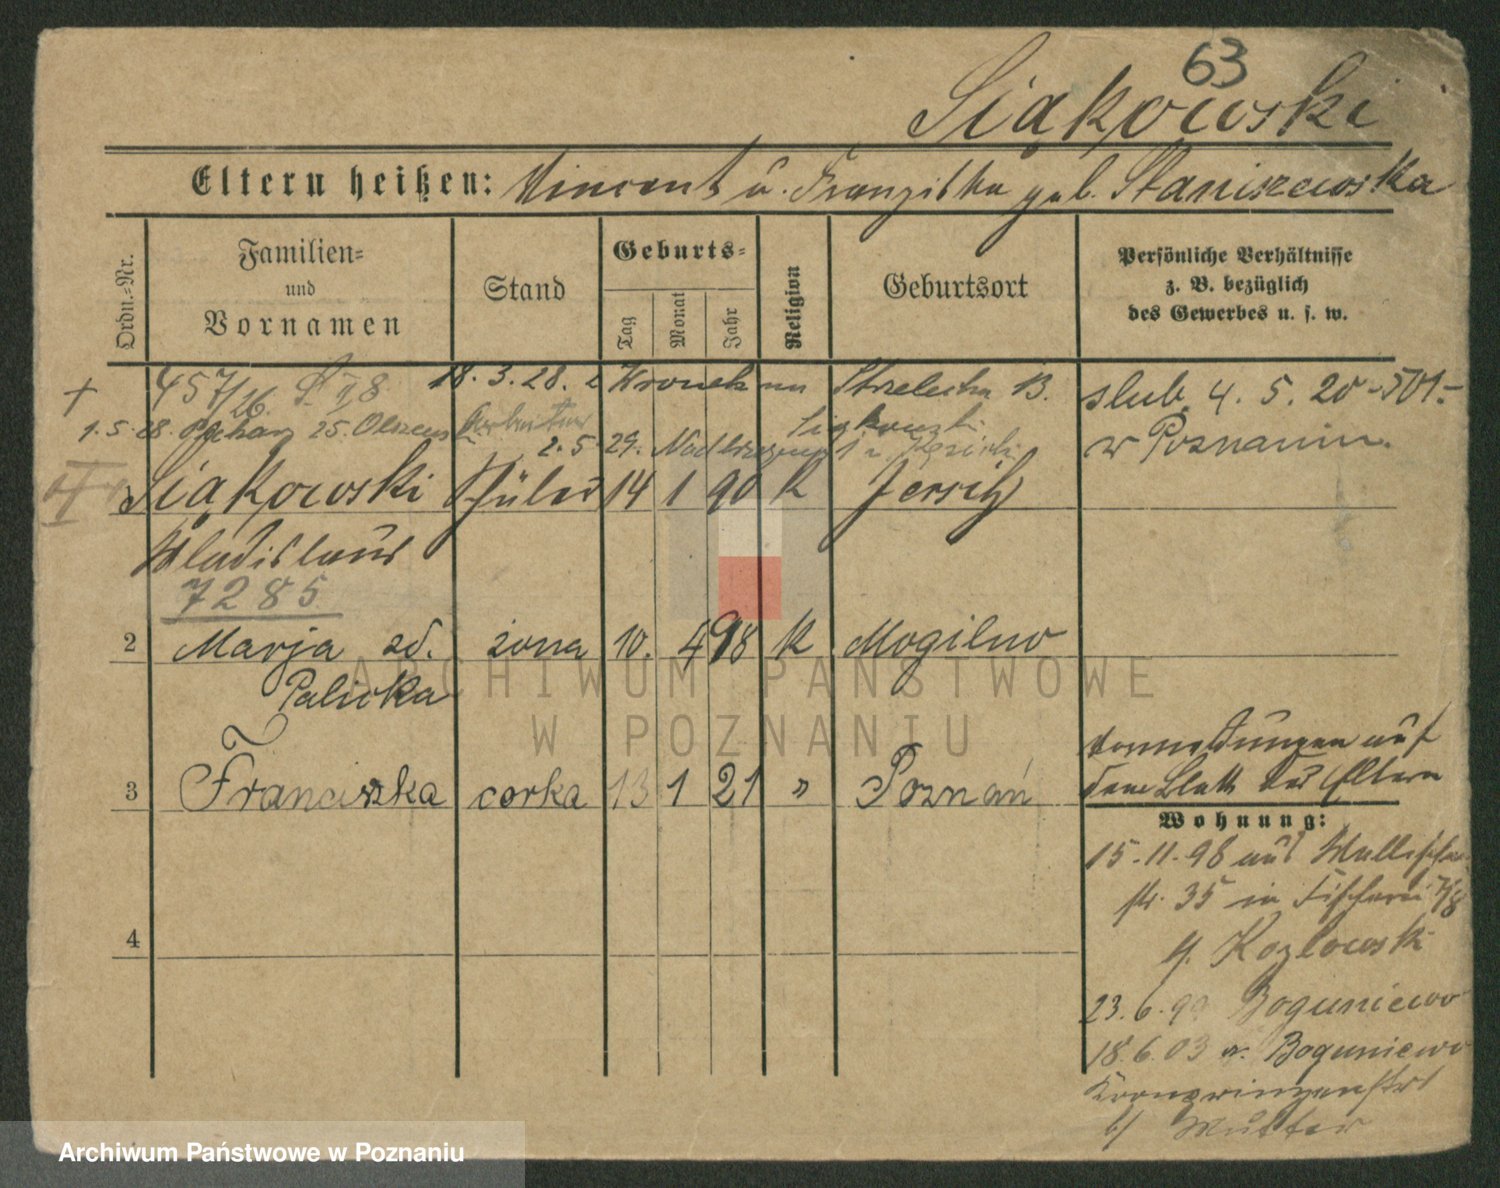 63
Siąkowski
Eltern heißen: Vincent u. Franziska geb. Staniszewska
Ordn.-Nr.
Familien-
und
Vornamen
Stand
Geburts-
Tag
Monat
Jahr
Religion
Geburtsort
Persönliche Verhältnisse
z. B. bezüglich
des Gewerbes u. s. w.
457/26. 18. 3. 28. Strzelecka 13. slub. 4. 5. 20 - 501.-
1. 5. 28. 25. w Poznaniu.
2. 5 29.
Siąkowski Schüler 14 1 90 K Jersitz
Wladislaus
7285
2 Marja zd. żona 10. 4 98 K Mogilno
Palicka
3 Franciszka corka 13 1 21 " Poznań
4
auf
dem Blatt der Eltern
Wohnung:
15.11.98 aus Wallischei
str. 35 in Fischerei 7/8
b. Kozlowski
23.6.99 Boguniewo
18.6.03 v. Boguniewo
Kronprinzenstr
b/ Mutter
ARCHIWUM PAŃSTWOWE
W POZNANIU
Archiwum Państwowe w Poznaniu